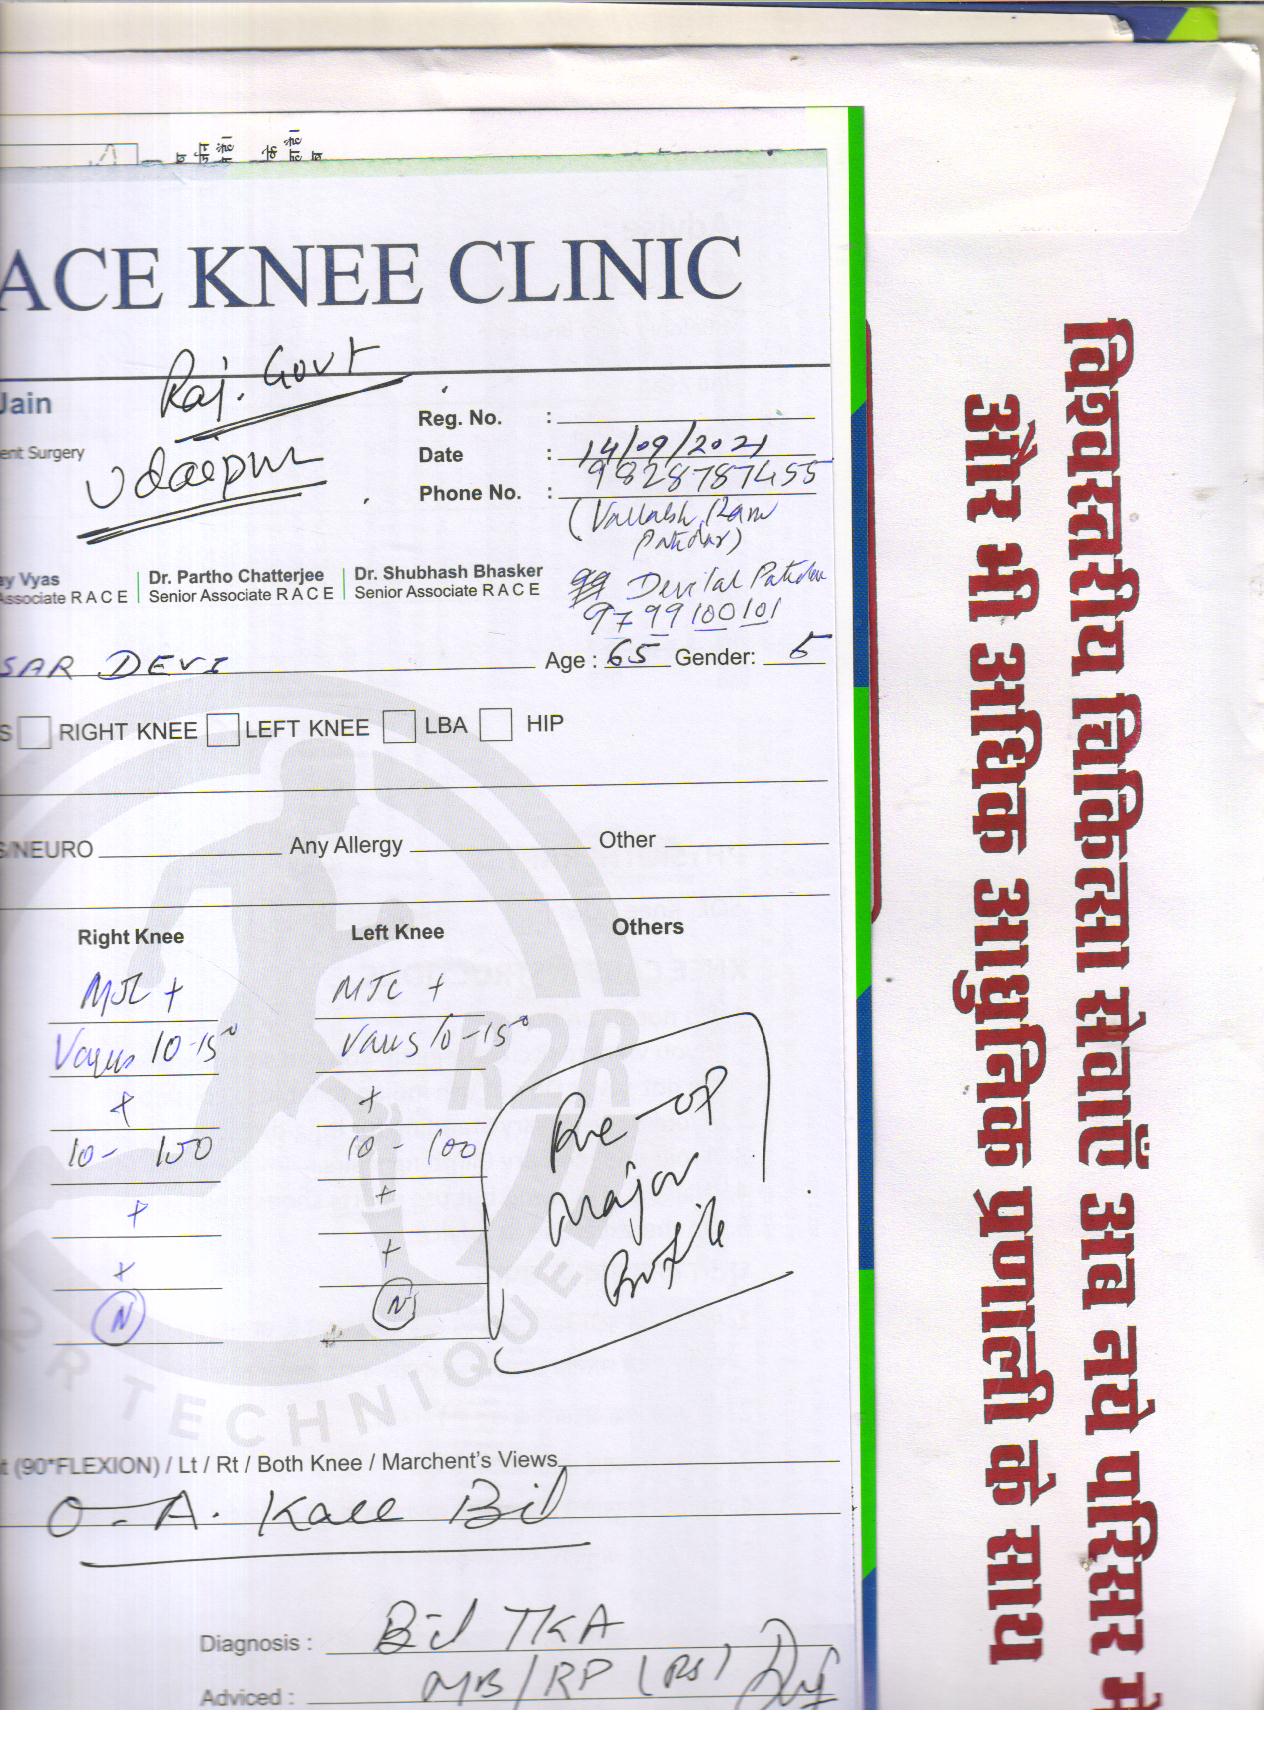 ACE KNEE CLINIC
Raj. Govt
Udaipur
Jain
ent Surgery
Reg. No. :
Date : 14/09/2021
Phone No. : 9828787455
(Vallabh Ram
Patidar)
Devilal Patidar
9799100101
ay Vyas
Associate R A C E
Dr. Partho Chatterjee
Senior Associate R A C E
Dr. Shubhash Bhasker
Senior Associate R A C E
SAR DEVI Age : 65 Gender:
S RIGHT KNEE LEFT KNEE LBA HIP
S/NEURO Any Allergy Other
Right Knee Left Knee Others
MJL + MJL +
Varus 10-15° Varus 10-15°
+ +
10 - 100 10 - 100
+ +
+ +
N N
Pre-op
Major
Profile
R2R
R TECHNIQUE
t (90*FLEXION) / Lt / Rt / Both Knee / Marchent's Views
O.A. Knee Bil
Diagnosis : Bil TKA
Adviced : MB/RP (PS)
विश्वस्तरीय चिकित्सा सेवाएँ अब नये परिसर में
और भी अधिक आधुनिक प्रणाली के साथ